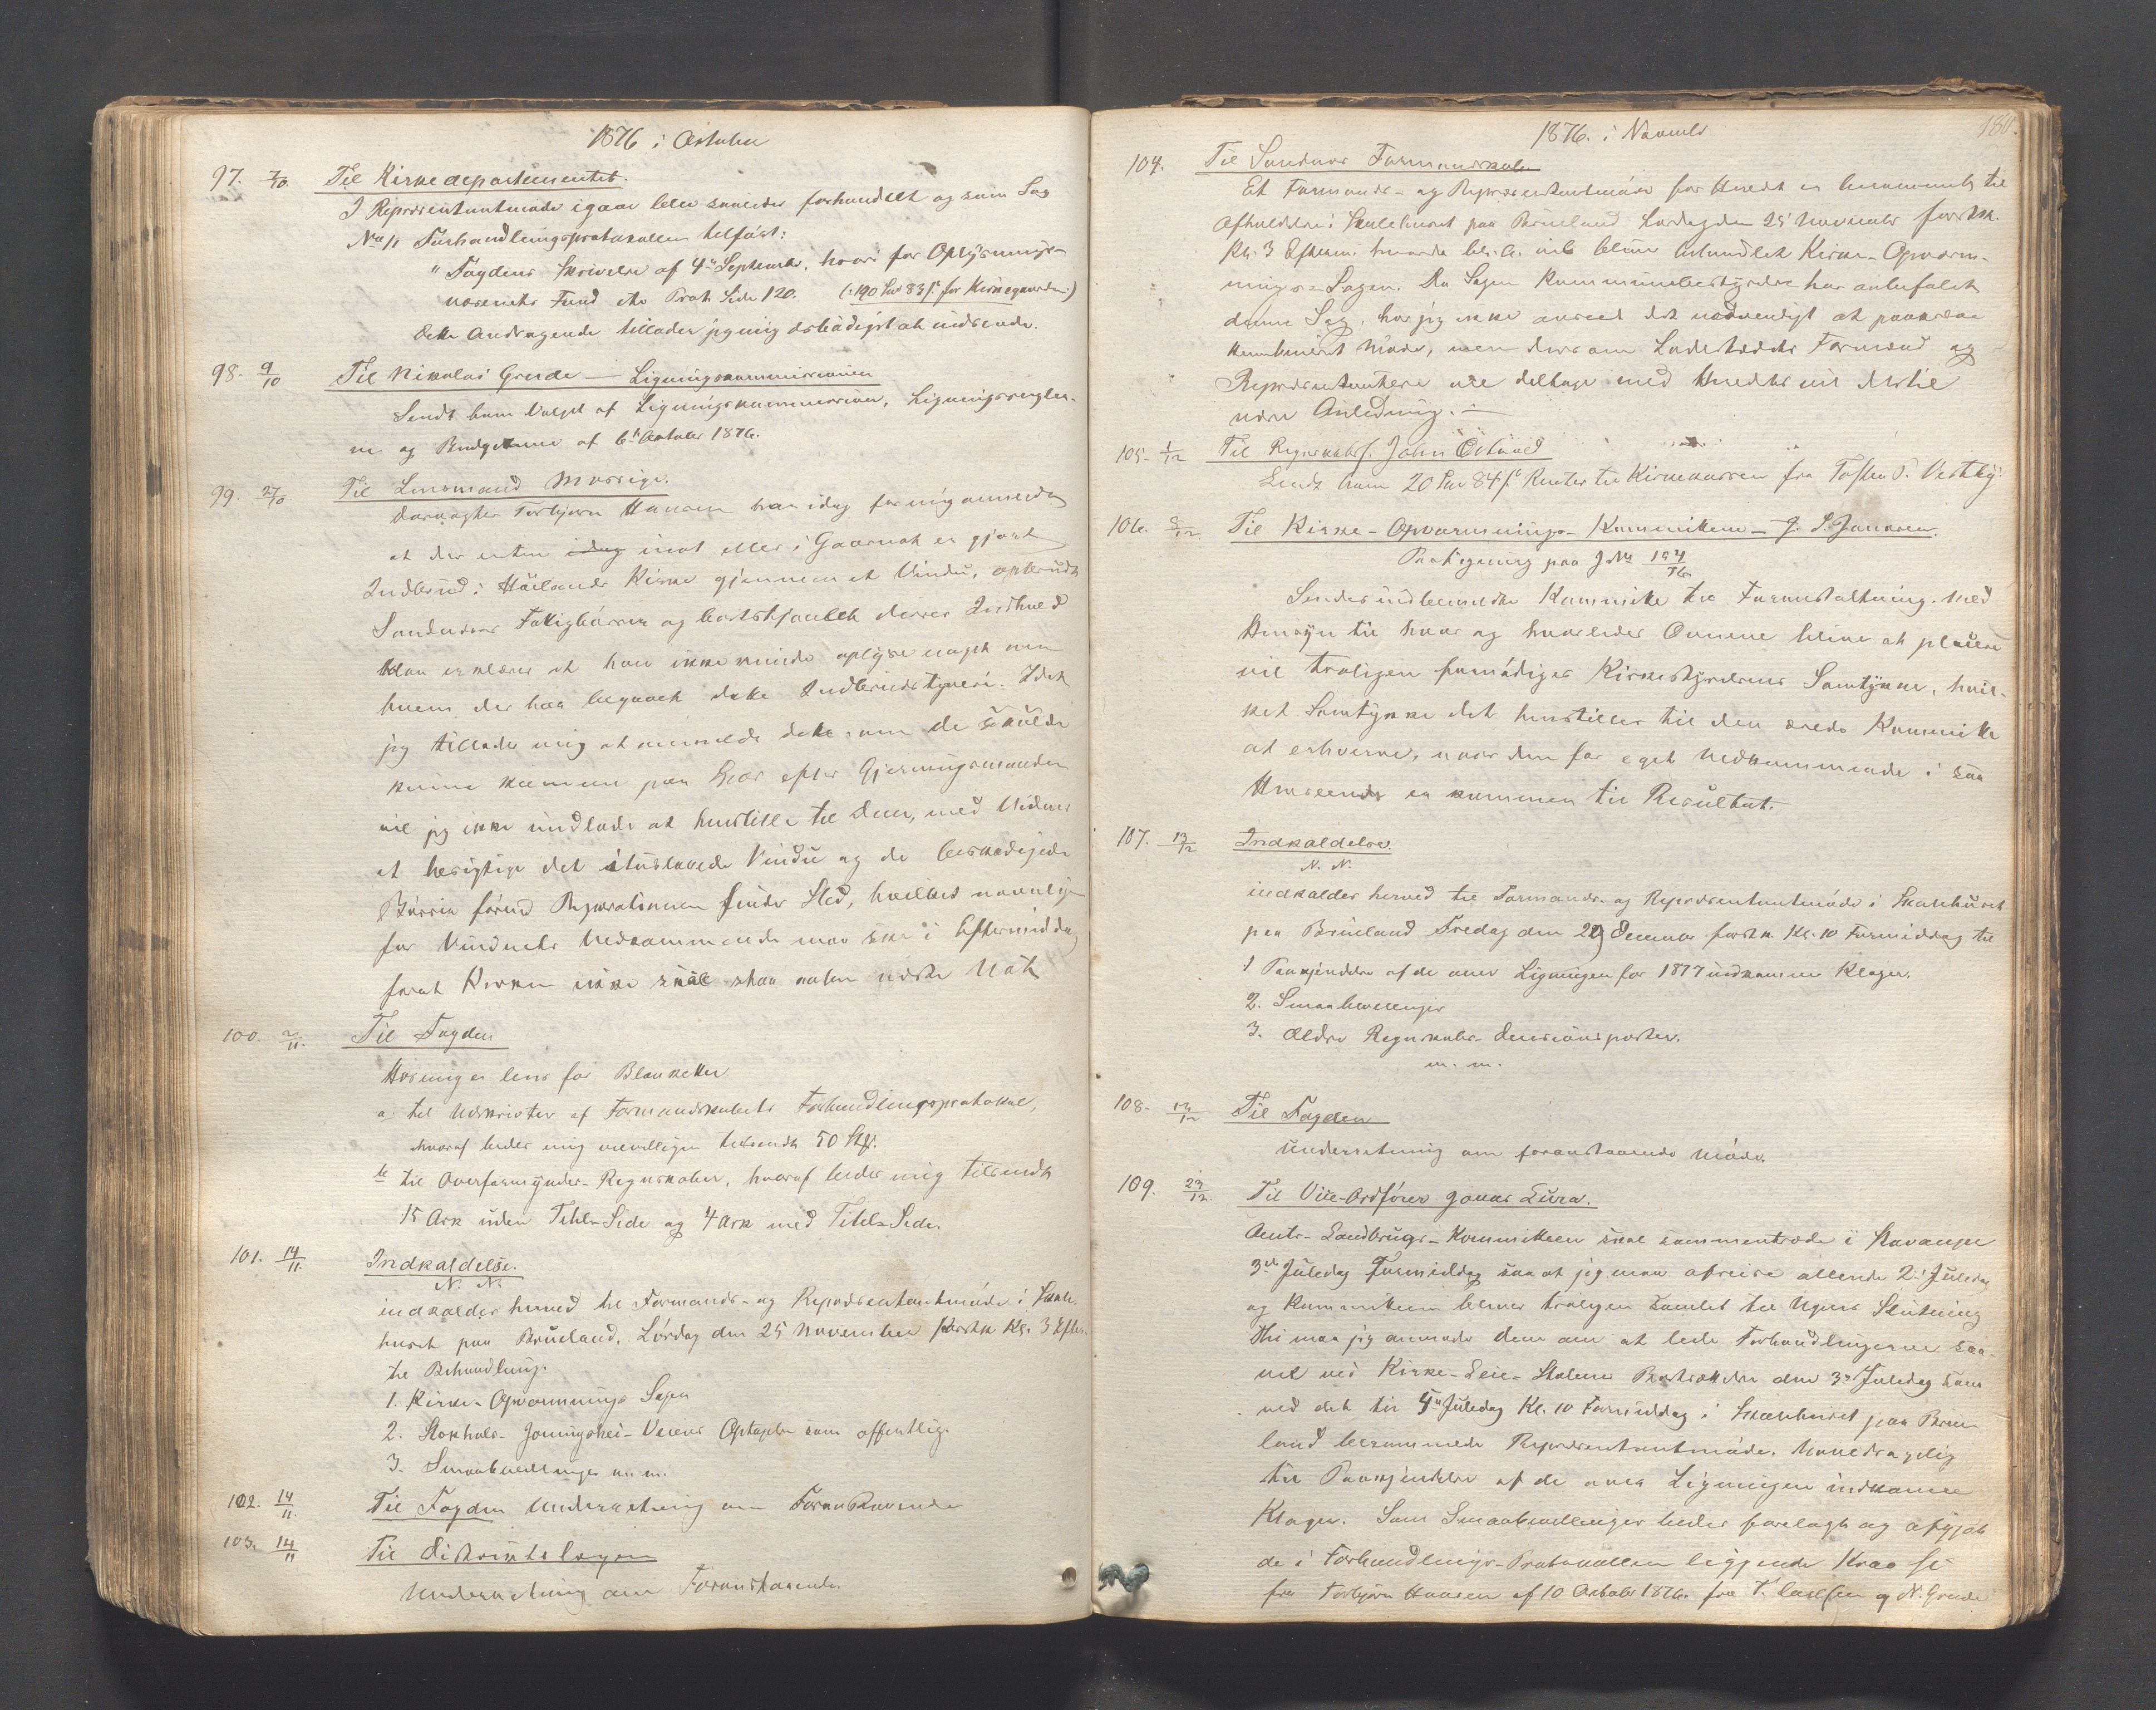 1876 i October
97. 7/10. Til Kirkedepartementet.
I Repræsentantmøde igaar blev saaledes forhandlet og som Sag
No 11 Forhandlingsprotokollen tilført:
"Fogdens Skrivelse af 4de September, hvori for Oplysnings-
væsenets Fond etc Prot. Side 120. (190 Spd 83 s. for Kirkegaarden)
Dette Andragende tillader jeg mig ærbødigst at indsende.
98. 9/10 Til Nikolai Grude — Ligningskommissionen
Sendt ham Valget af Ligningskommission, Ligningsregler-
ne og Budgetterne af 6te October 1876.
99. 27/10. Til Lensmand Mossige.
Torbjørn Hansen har idag for mig anmeldt
at der enten idag inat eller i Gaarnat er gjort
Indbrud i Høilands Kirke gjennem et Vindu, opbrudt
Sandnæs Fattigbøsse og bortstjaalet dennes Indhold
Han erklærer at han ikke kunde oplyse noget om
hvem der har begaaet dette Indbrudstyveri. Idet
jeg tillader mig at anmelde dette, om de skulde
kunne komme paa Spor efter Gjerningsmanden
vil jeg ikke undlade at henstille til Dem, med Vidner
at besigtige det itusslaaede Vindu og de beskadigede
Bøssen førend Reparationen finder Sted, hvilket navnlig
for Vinduets Vedkommende maa ske i Eftermiddag
forat Kirken ikke skal staa aaben næste Nat
100. 2/11. Til Fogden
Herning er lens for Blanketter
a. til Udskrifter af Formandskabets Forhandlingsprotokol,
hvoraf bedes mig velvilligen tilsendt 50 Stk.
b til Overformynder-Regnskaber, hvoraf bedes mig tilsendt
15 Ark uden Titel-Side og 4 Ark med Titel-Side.
101. 14/11. Indkaldelse.
N. N.
indkaldes herved til Formands- og Repræsentantmøde i Skole-
huset paa Brueland, Lørdag den 25 November førstk Kl. 3 Efterm.
til Behandling.
1. Kirke-Opvarmnings Sagen
2. Optagelse som offentlig
3. Smaabevillinger m.m.
102. 14/11. Til Fogden Underretning om Foranstaaende
103. 14/11 Til Distriktslægen
Underretning om Foranstaaende.
1876. i Novemb 180.
104. Til Sandnes Formandskab
Et Formands- og Repræsentantmøde for Herredet er berammet til
Afholdelse i Skolehuset paa Brueland Lørdag den 25 November førstk.
Kl. 3 Efterm. hvorda bl. A. vil blive behandlet Kirke-Opvarm-
nings-Sagen. Da Kommunebestyrelse har anbefalet
denne Sag, har jeg ikke anseet det nødvendigt at paakræve
kombineret Møde, men dersom Ladestedets Formænd og
Repræsentantere ville deltage med Herredets vil dertil
være Anledning.—
105. 1/12 Til Regnskabsf. John Østvold
Sendt ham 20 Spd 84 s Renter til Kirkekassen fra P. Vestly.
106. 8/12 Til Kirke-Opvarmnings-Kommiteen — J. S. Jansen.
Paategning paa J No 104/76.
Sendes indbemeldte Kommite til Foranstaltning. Med
Hensyn til hvor og hvorledes Ovnene blive at placere
vil troligen fornødiges Kirkestyrelsens Samtykke, hvil-
ket Samtykke det henstilles til den ærede Kommite
at erhverve, naar den for eget Vedkommende i saa
Henseende er kommen til Resultat.
107. 13/12 Indkaldelse.
N. N.
indkaldes herved til Formands- og Repræsentantmøde i Skolehuset
paa Brueland Fredag den 29 December førstk. Kl. 10 Formiddag til
1 Paakjendelse af de over Ligningen for 1877 indkomne Klager.
2. Smaabevillinger
3. Ældre Regnskabs-Decisionsposter.
m. m.
108. 13/12 Til Fogden
Underretning om foranstaaende Møde.
109. 23/12. Til Vice-Ordfører Jonas Lura.
Amts-Landbrugs-Kommiteen skal sammentræde i Stavanger
3die Juledag Formiddag saa at jeg maa afreise allerede 2. Juledag
og Kommiteen bliver troligen samlet til Ugens Slutning
Thi maa jeg anmode Dem om at lede Forhandlingerne saa-
vel ved Kirke-Leie-Stolenes den 3die Juledag som
ved det til 4de Juledag Kl. 10 Formiddag i Skolehuset paa Brue-
land berammede Repræsentantmøde, hovedsagelig
til Paakjendelse af de over Ligningen indkomne
Klager. Som Smaabevillinger bedes forelagt og afgjort
de i Forhandlings-Protokollen liggende Krav se
fra Torbjørn Hansen af 10 Octobr 1876. fra og N. Grude